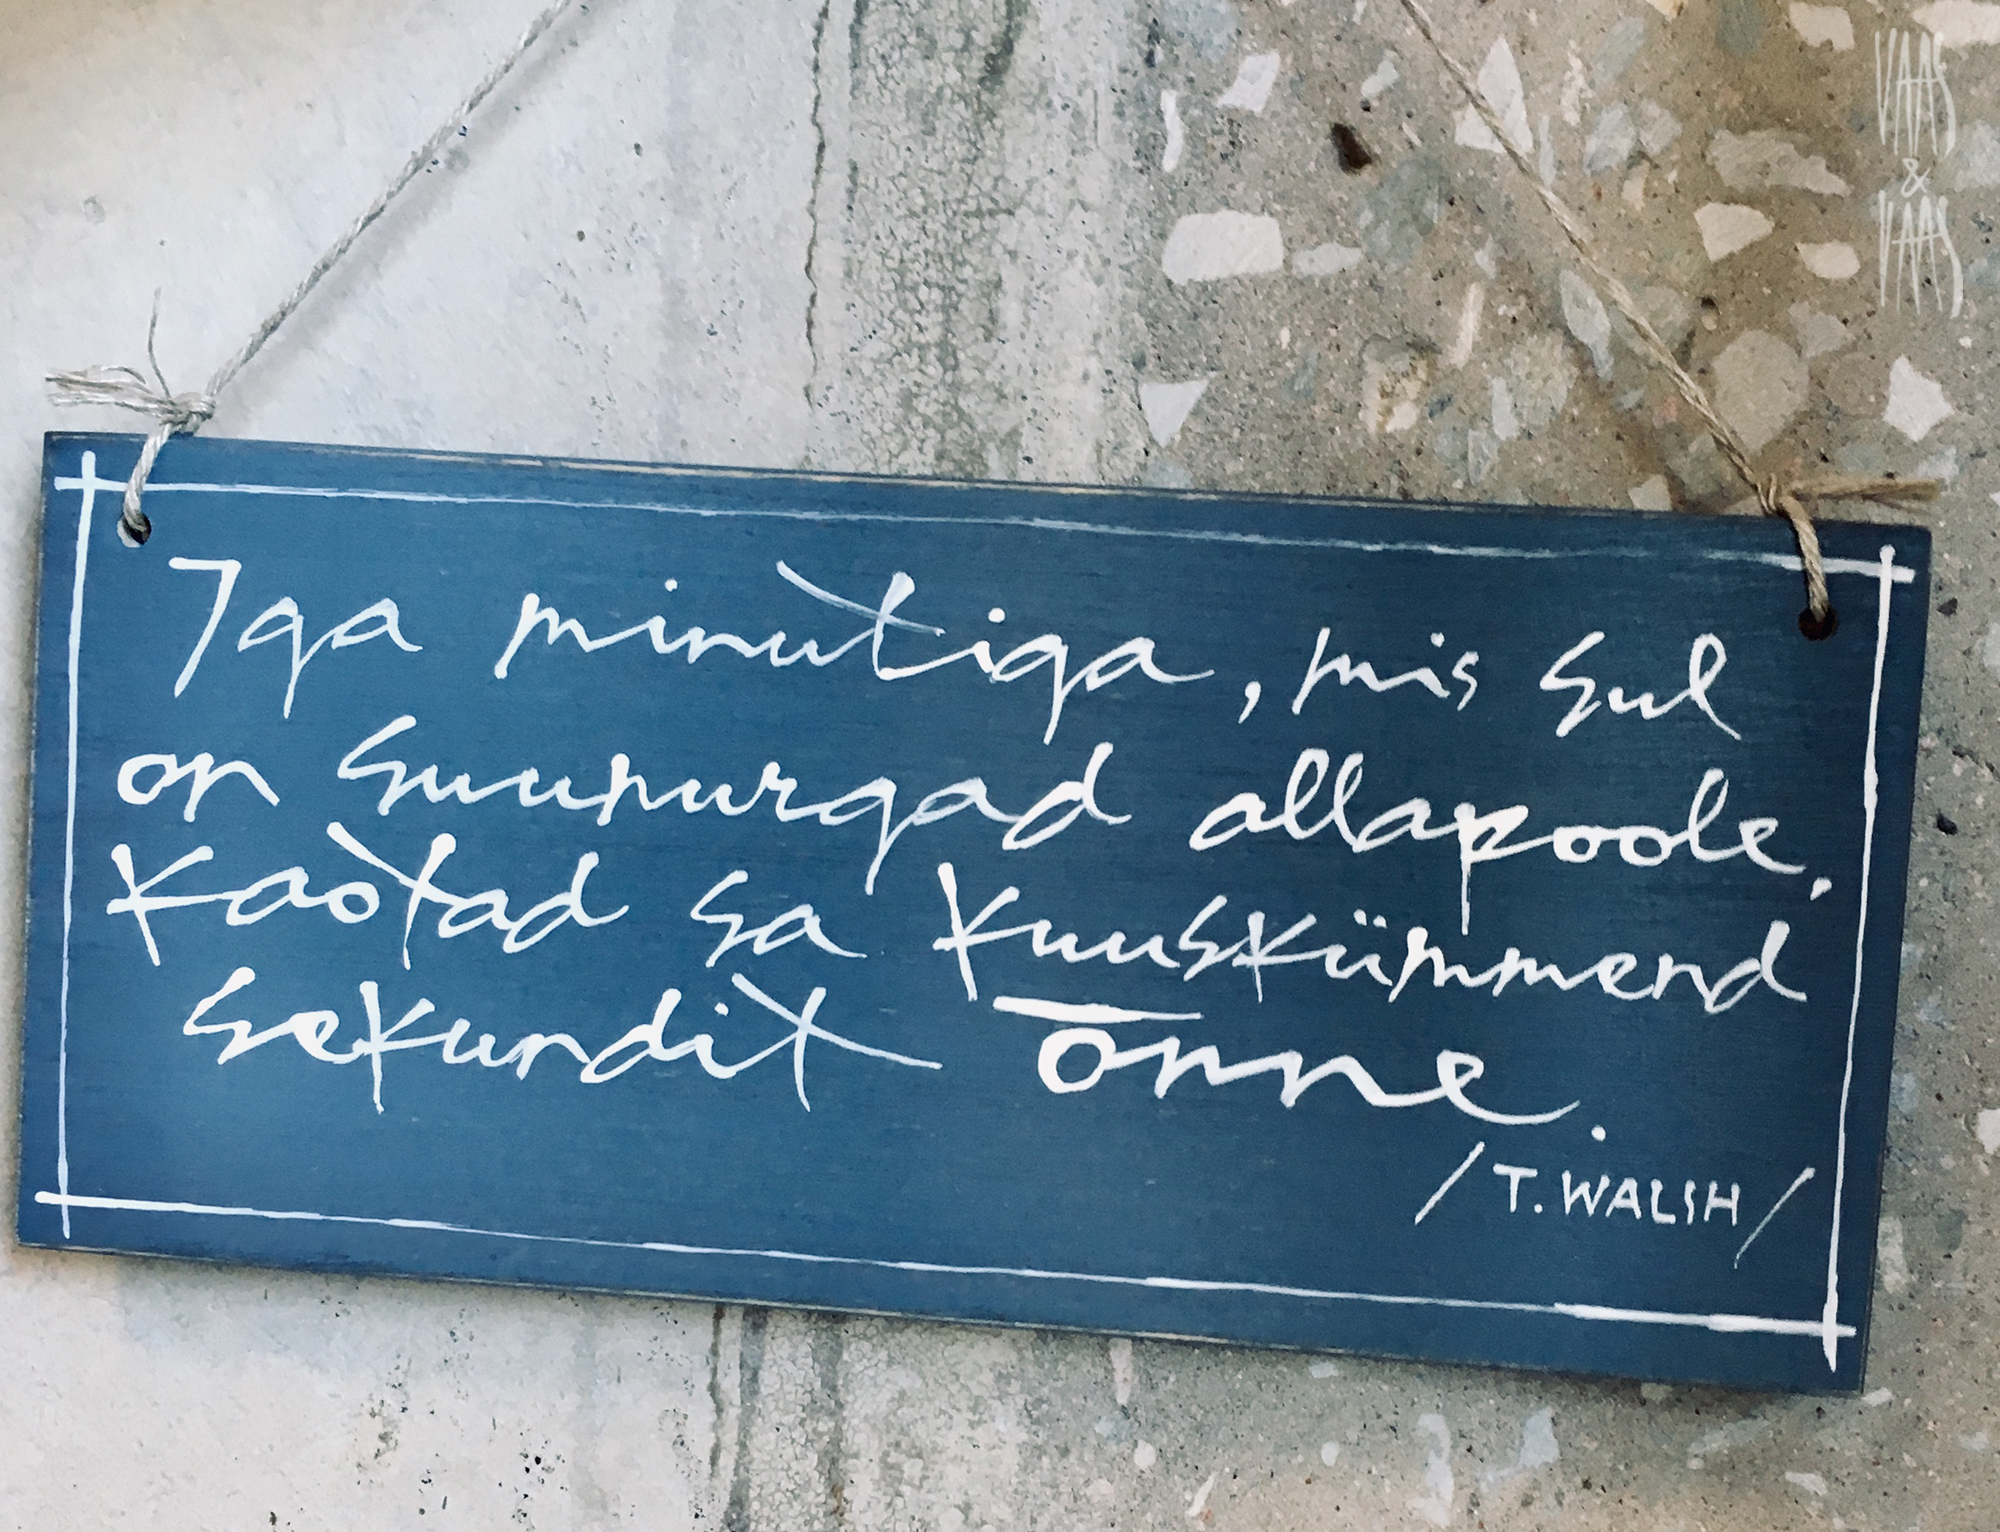 Iga minutiga, mis sul
on suunurgad allapoole,
kaotad sa kuuskümmend
sekundit õnne.
/T. WALSH/
VAAS
&
VAAS